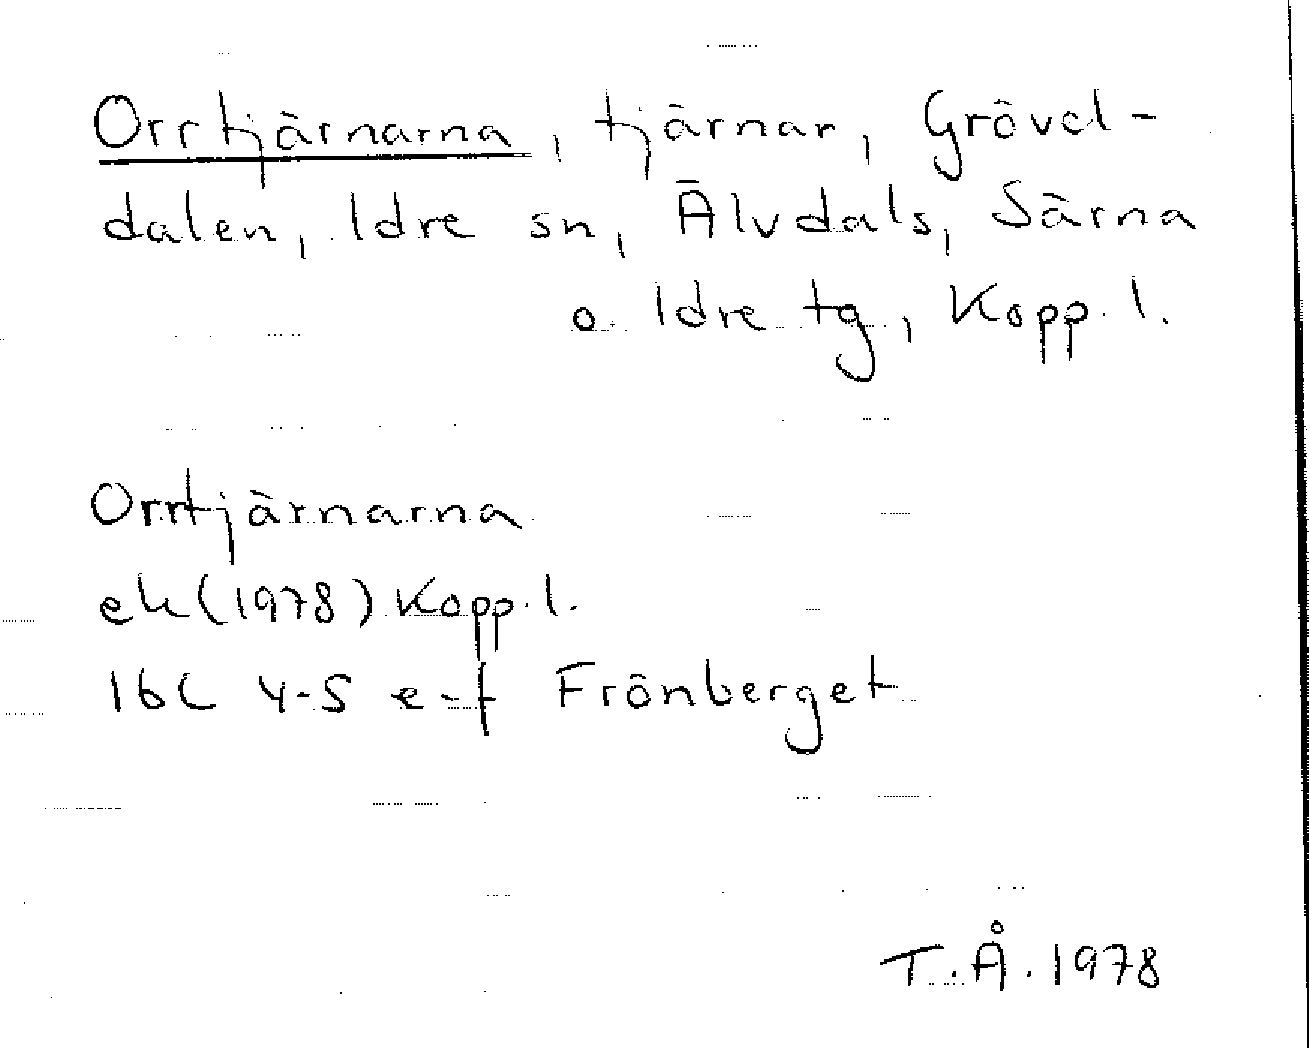 Orrtjärnarna, tjärnar, Grövel-
dalen, Idre sn, Älvdals, Särna
o Idre tg, Kopp. l.
Orrtjärnarna
ek (1978) Kopp. l.
16C 4-5 e-f Frönberget
T.Å. 1978